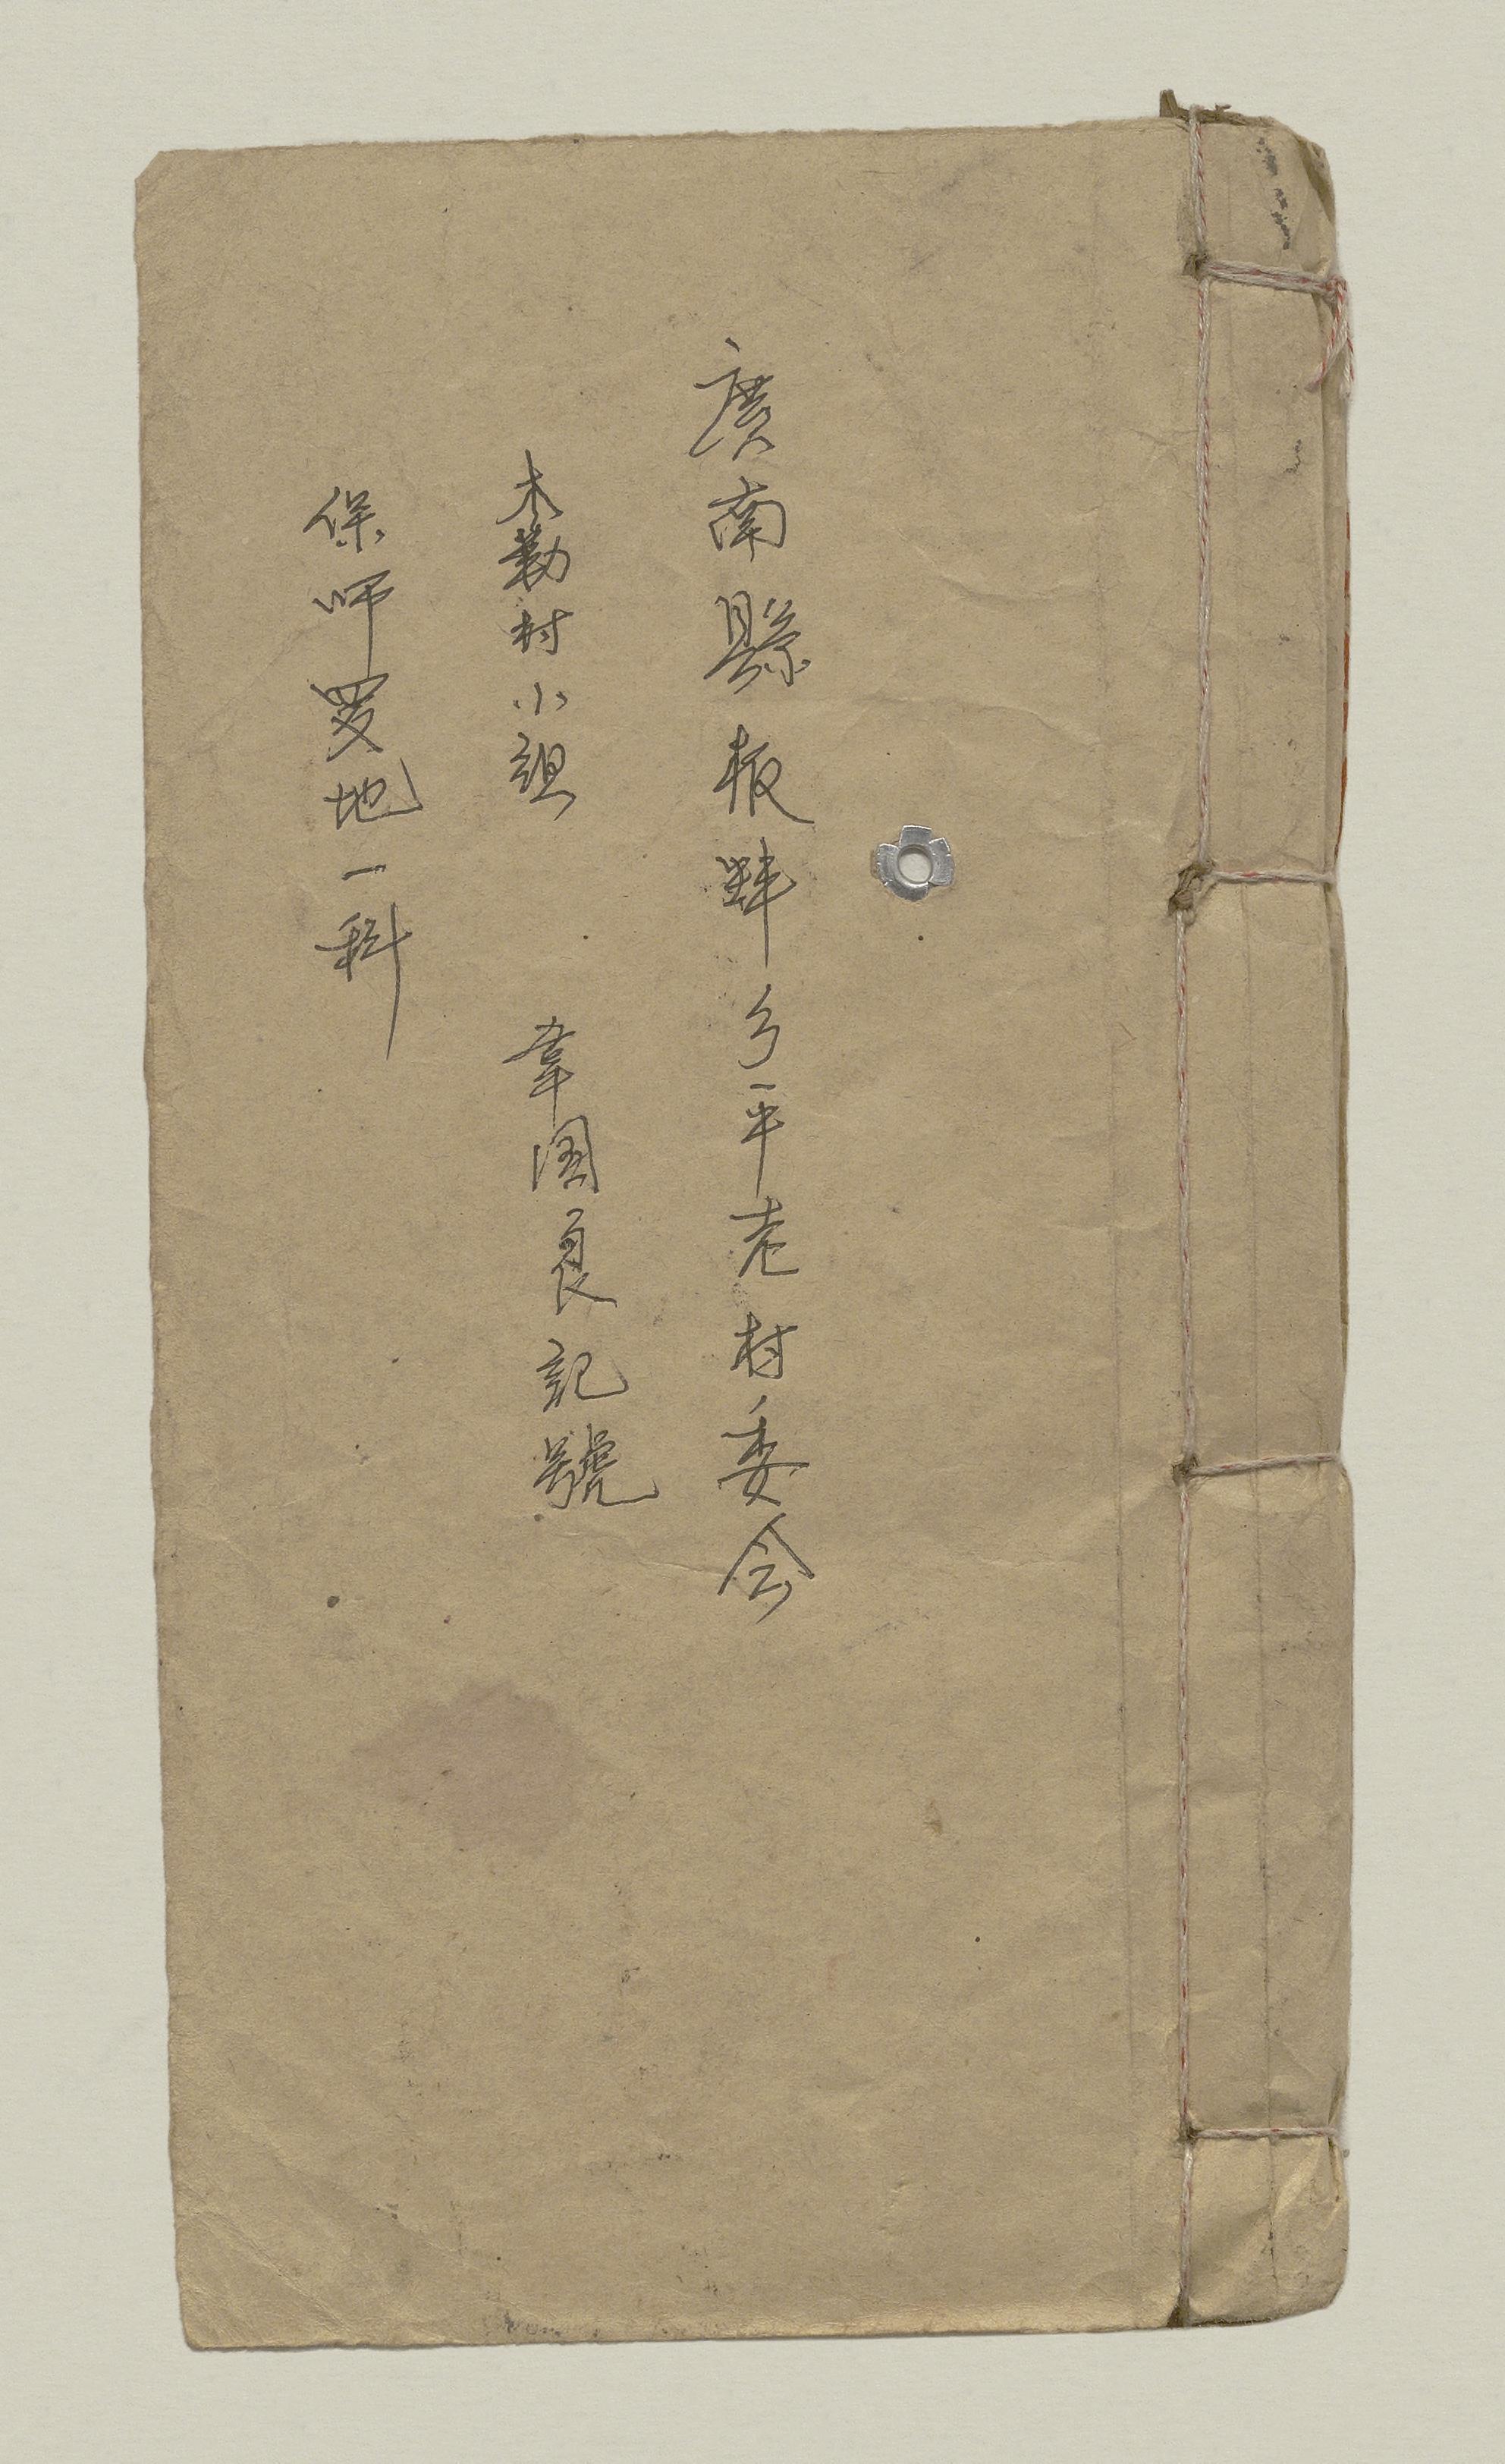 廣南縣板蚌乡平老村委会
木勒村小組 韋国良記號
保师罗地一科